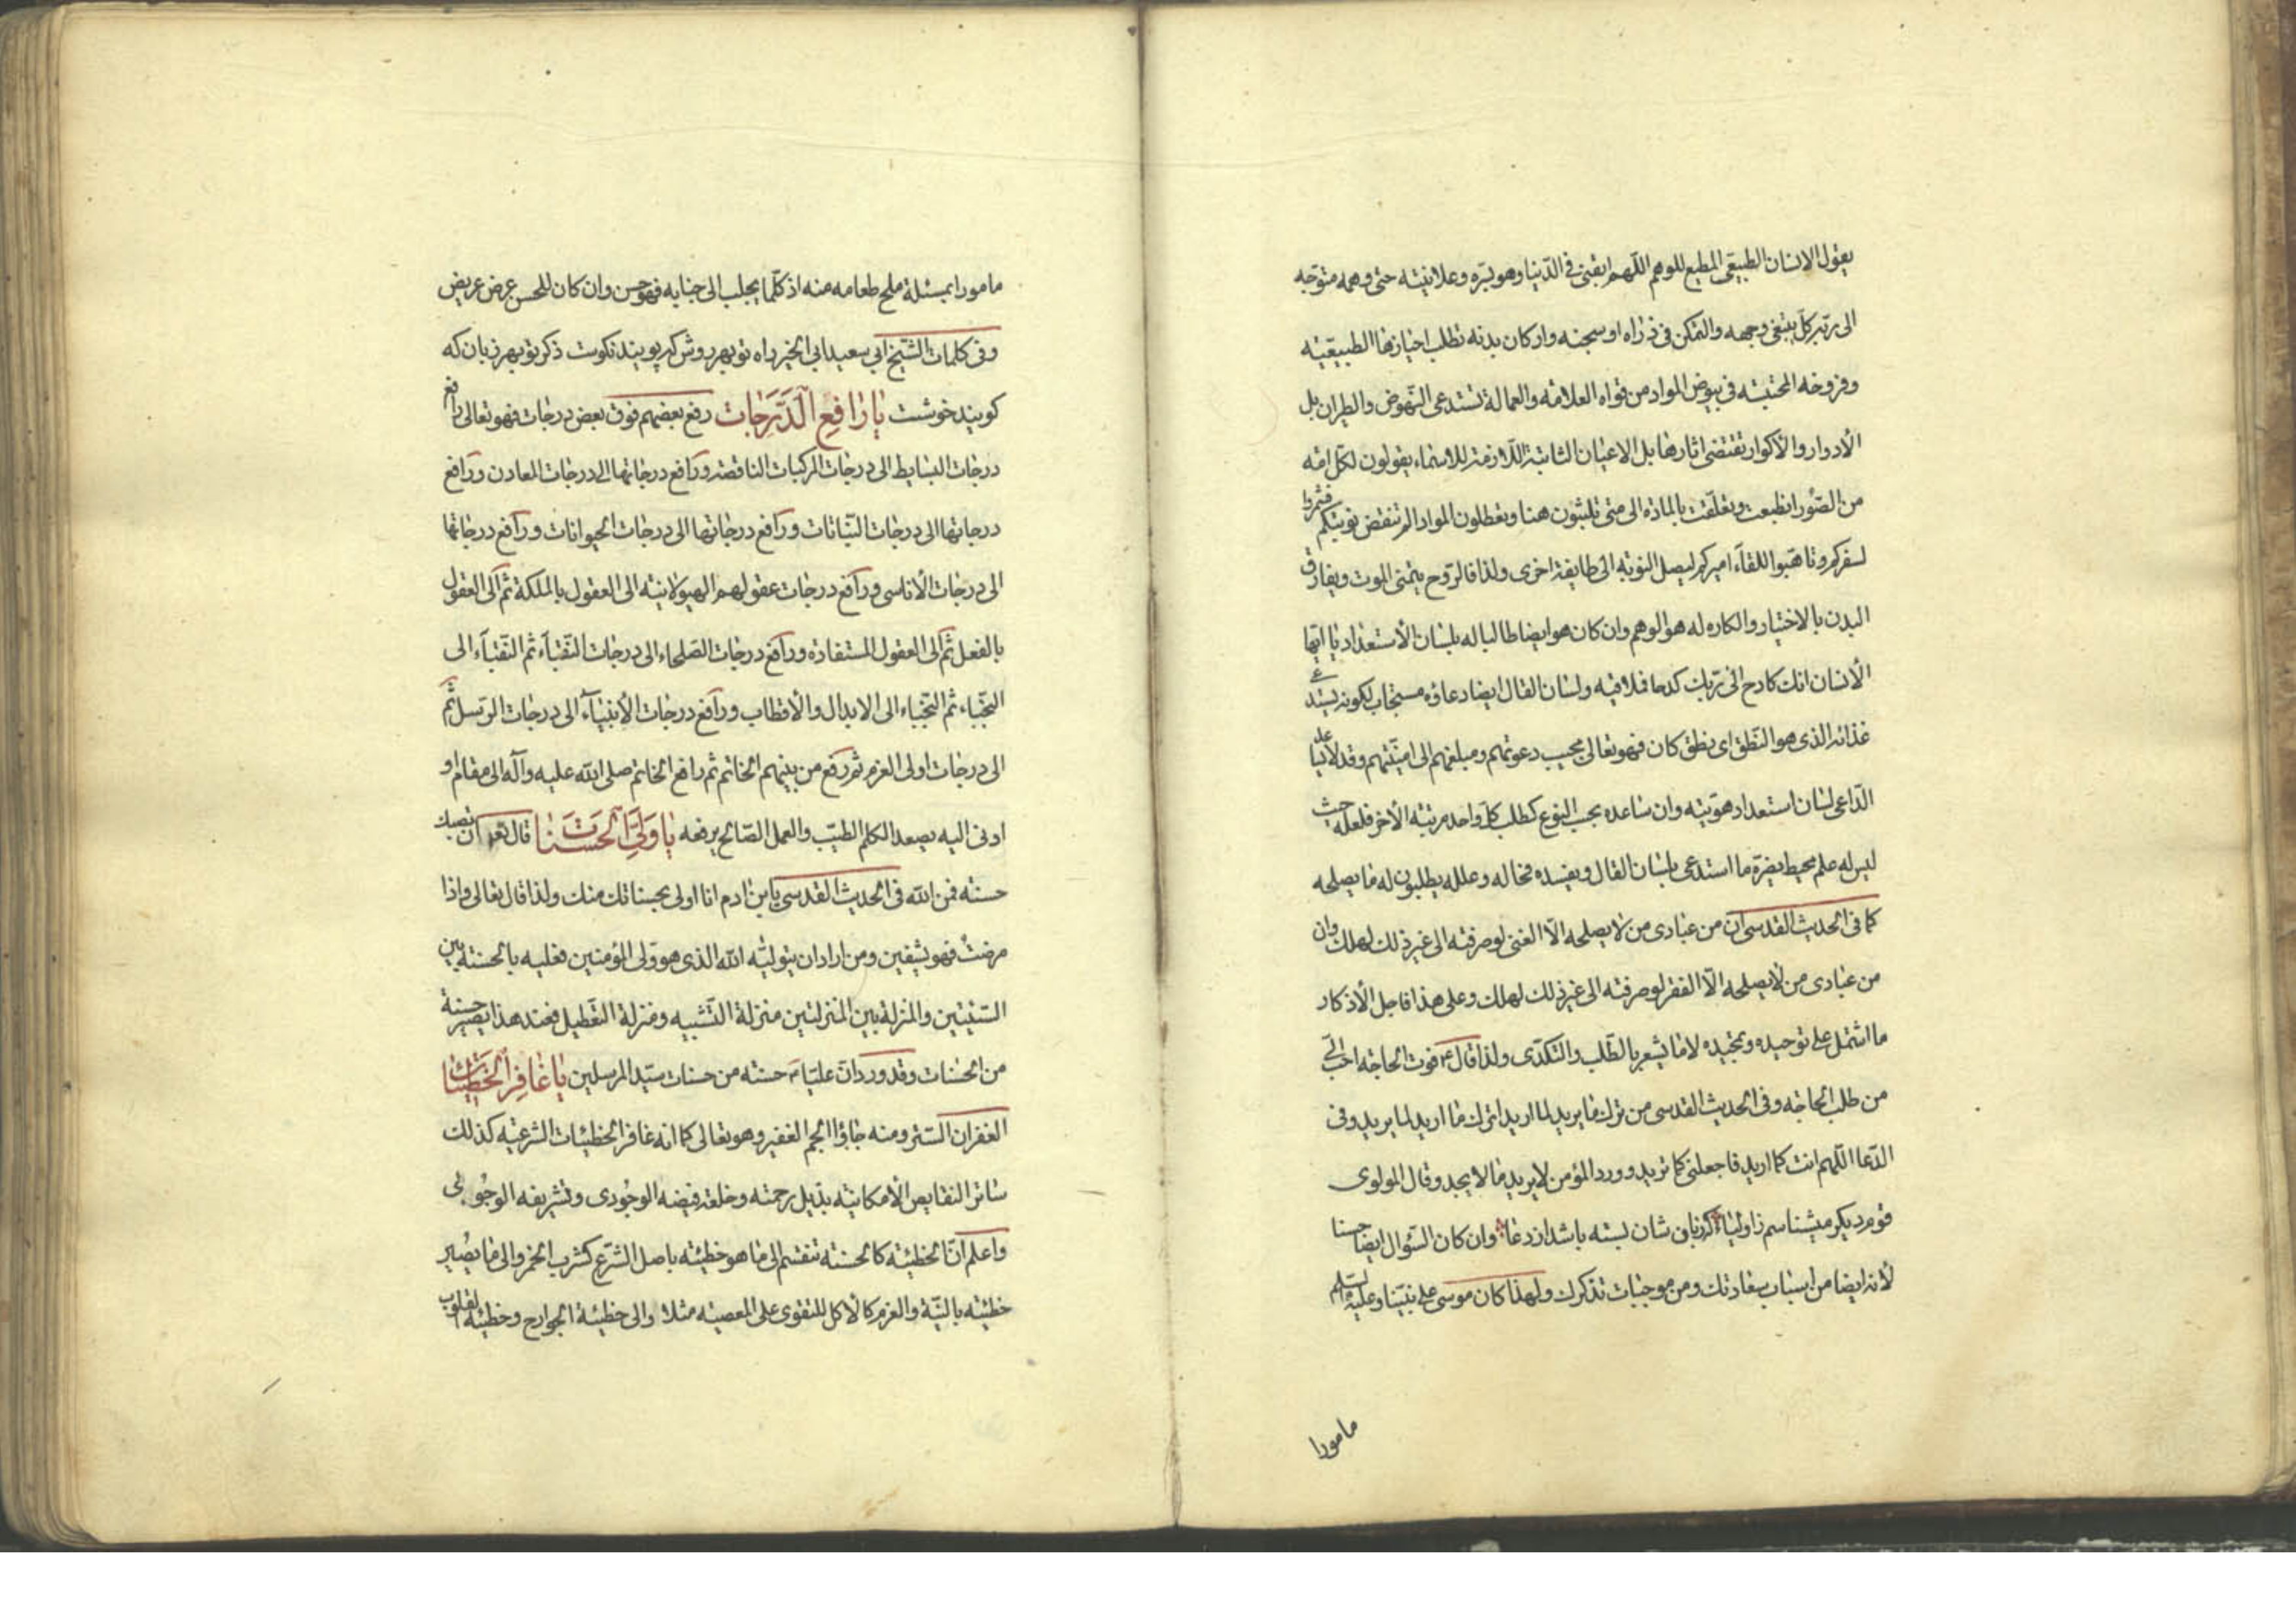 يقول الانسان الطبيعى المطيع للوهم اللهم ابقنى فى الدنيا وهو بسره وعلانيته حتى وهمه متوجه
الى ربه كل يبتغى وجهه والتمكن فى ذراه او سجنه واركان بدنه تطلب احيازها الطبيعيه
وفروخه المحتبسه فى بيوض المواد من قواه العلامه والعمالة تستدعى النهوض والطيران بل
الأدوار والأكوار تقتضى اثارها بل الاعيان الثابتة اللازمة للاسماء يقولون لكل امه
من الصور انطبعت وتعلقت بالمادة الى متى تلبثون هنا وتعطلون المواد الم تنقض نوبتكم فشمروا
لسفركم وتاهبوا للقاء اميركم ليصل النوبه الى طايفة اخرى ولذا فالروح يتمنى الموت ويفارق
البدن بالاختيار والكاره له هو الوهم وان كان هو ايضا طالبا له بلسان الأستعداد يا ايها
الأنسان انك كادح الى ربك كدحا فملاقيه ولسان القال ايضا دعاؤه مستجاب لكونه يستدعى
غذائه الذى هو النطق اى نطق كان فهو تعالى مجيب دعوتهم ومبلغهم الى امنيتهم وقد لا يساعد
الداعى لسان استعداد هويته وان ساعده بحسب النوع كطلب كل واحد مرتبة الأخر فلعله حيث
ليس له علم محيط يضره ما استدعى بلسان القال ويفسده فخاله وعلله يطلبون له ما يصلحه
كما فى الحديث القدسى ان من عبادى من لا يصلحه الا الغنى لو صرفته الى غير ذلك لهلك وان
من عبادى من لا يصلحه الا الفقر لو صرفته الى غير ذلك لهلك وعلى هذا فاجل الأذكار
ما اشتمل على توحيده وتمجيده لا ما يشعر بالطلب والتكدى ولذا قال ع فوت الحاجه احب الى
من طلب الحاجه وفى الحديث القدسى من ترك ما يريد لما اريد اترك ما اريد لما يريد وفى
الدعا اللهم انت كما اريد فاجعلنى كما تريد وورد المؤمن لا يريد ما لا يجد وقال المولوى
قوم ديكر ميشناسم ز اوليا كه زبان شان بسته باشد از دعا وان كان السؤال ايضا حسنا
لأنه ايضا من اسباب سعادتك ومن موجبات تذكرك ولهذا كان موسى على نبينا وعليه السلم
مامورا
مامورا بمسئلة ملح طعامه منه اذ كلما يجلب الى جنابه فهو حسن وان كان للحسن عرض عريض
وفى كلمات الشيخ ابى سعيد ابى الخير راه تو بهر روش كه پويند نكوست ذكر تو بهر زبان كه
كويند خوشست يا رافع الدرجات رفع بعضهم فوق بعض درجات فهو تعالى رافع
درجات البسايط الى درجات المركبات الناقصة ورافع درجاتها الى درجات المعادن ورافع
درجاتها الى درجات النباتات ورافع درجاتها الى درجات الحيوانات ورافع درجاتها
الى درجات الأناسى ورافع درجات عقولهم الهيولانيه الى العقول بالملكة ثم الى العقول
بالفعل ثم الى العقول المستفادة ورافع درجات الصلحاء الى درجات النقباء ثم النقباء الى
النجباء ثم النجباء الى الابدال والأقطاب ورافع درجات الأنبياء الى درجات الرسل ثم
الى درجات اولى العزم ثم رفع من بينهم الخاتم ثم رافع الخاتم صلى الله عليه وآله الى مقام او
ادنى اليه يصعد الكلم الطيب والعمل الصالح يرفعه يا ولى الحسنات قال تعه ان تصبك
حسنه فمن الله فى الحديث القدسى يابن ادم انا اولى بحسناتك منك ولذا قال تعالى واذا
مرضت فهو يشفين ومن اراد ان يتوليه الله الذى هو ولى المؤمنين فعليه بالحسنة بين
السيئتين والمنزلة بين المنزلتين منزلة التشبيه ومنزلة التعطيل فعند هذا يصير حسنة
من الحسنات وقد ورد ان عليا حسنه من حسنات سيد المرسلين يا غافر الخطيئات
الغفران الستر ومنه جاؤا الجم الغفير وهو تعالى كما انه غافر الخطيئات الشرعيه كذلك
ساتر النقايص الأمكانيه بذيل رحمته وخلعة فيضه الوجودى وتشريفه الوجوبى
واعلم ان الخطيئه كالحسنة تنقسم الى ما هو خطيئه باصل الشرع كشرب الخمر والى ما يصير
خطيئه بالنية والعزم كالأكل للتقوى على المعصيه مثلا والى خطيئة الجوارح وخطيئه القلوب